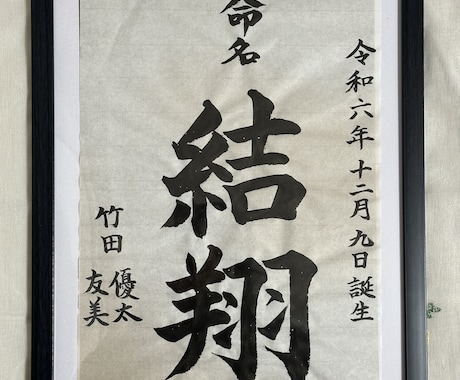 令和六年十二月九日誕生
命名
結翔
竹田 優太
友美